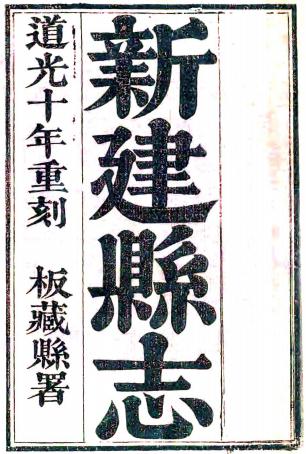 新建縣志
道光十年重刻 板藏縣署